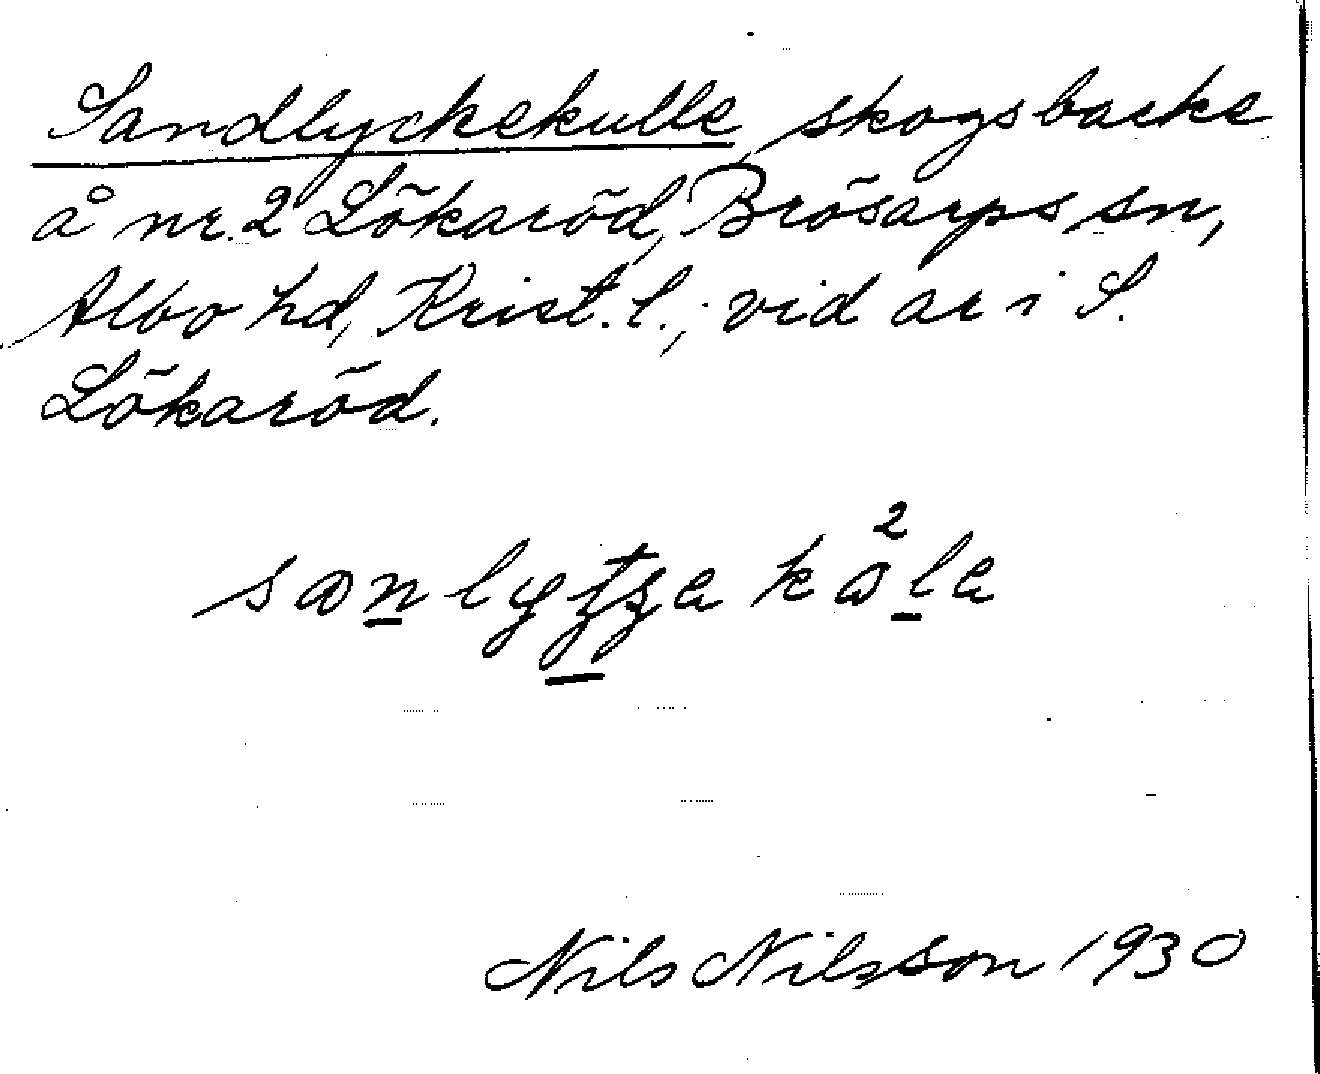 Sandlyckekulle skogsbacke
å nr. 2 Lökaröd, Brösarps sn,
Albo hd, Krist. l.; vid ar i S.
Lökaröd.
2
Nils Nilsson 1930